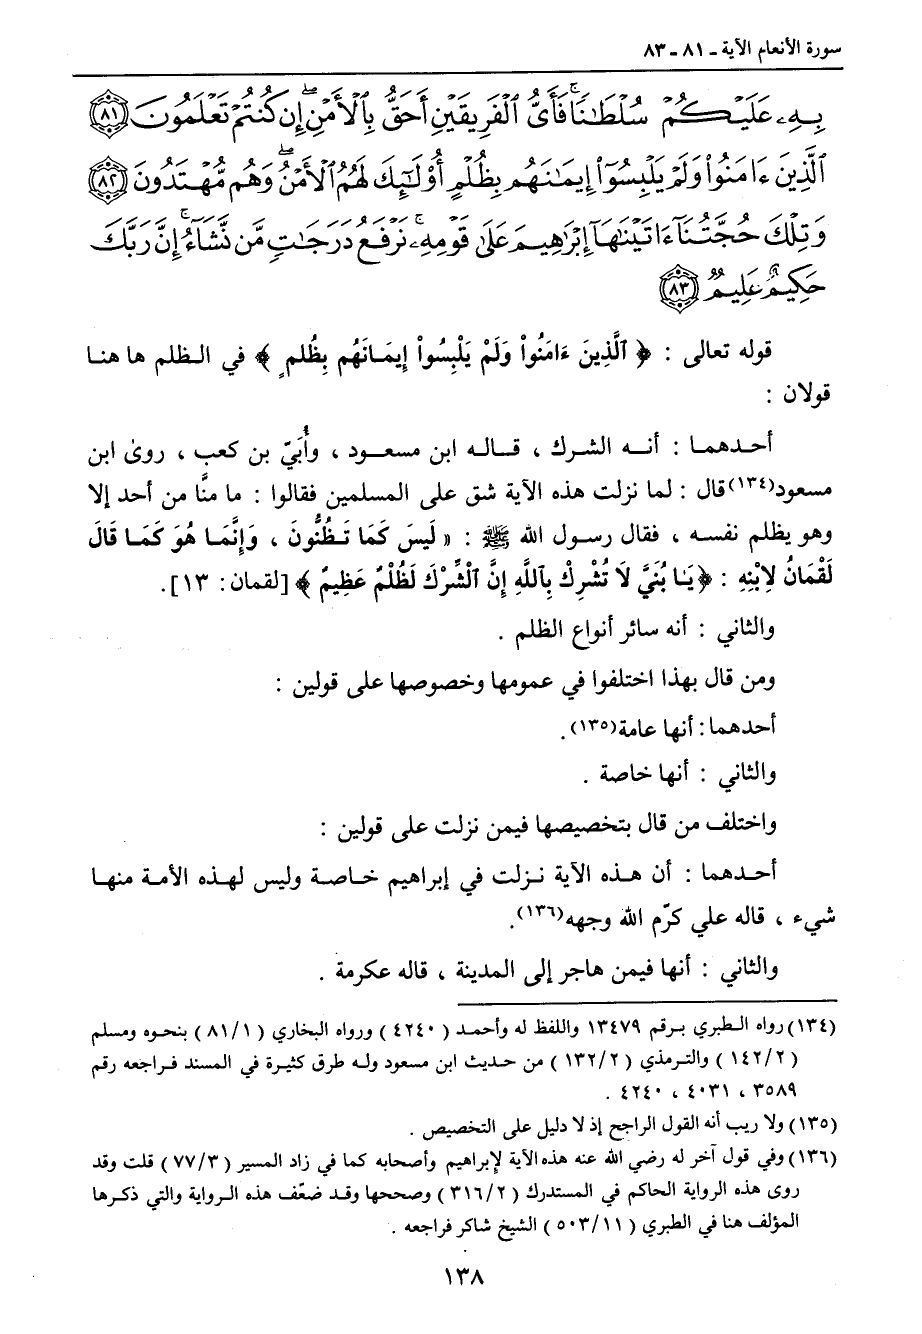 سورة الأنعام الآية ـ ٨١ ـ ٨٣
بِهِۦ عَلَيْكُمْ سُلْطَٰنًا ۚ فَأَىُّ ٱلْفَرِيقَيْنِ أَحَقُّ بِٱلْأَمْنِ ۖ إِن كُنتُمْ تَعْلَمُونَ ﴿٨١﴾
ٱلَّذِينَ ءَامَنُوا۟ وَلَمْ يَلْبِسُوٓا۟ إِيمَٰنَهُم بِظُلْمٍ أُو۟لَٰٓئِكَ لَهُمُ ٱلْأَمْنُ ۖ وَهُم مُّهْتَدُونَ ﴿٨٢﴾
وَتِلْكَ حُجَّتُنَآ ءَاتَيْنَٰهَآ إِبْرَٰهِيمَ عَلَىٰ قَوْمِهِۦ ۚ نَرْفَعُ دَرَجَٰتٍ مَّن نَّشَآءُ ۗ إِنَّ رَبَّكَ
حَكِيمٌ عَلِيمٌ ﴿٨٣﴾
قوله تعالى : ﴿ ٱلَّذِينَ ءَامَنُواْ وَلَمْ يَلْبِسُواْ إِيمَانَهُم بِظُلمٍ ﴾ في الظلم ها هنا
قولان :
أحدهما : أنه الشرك ، قاله ابن مسعود ، وأُبَيّ بن كعب ، روىٰ ابن
مسعود(١٣٤) قال : لما نزلت هذه الآية شق على المسلمين فقالوا : ما منَّا من أحد إلا
وهو يظلم نفسه ، فقال رسول الله ﷺ : « لَيسَ كَمَا تَظُنُّونَ ، وَإِنَّمَا هُوَ كَمَا قَالَ
لَقْمَانُ لِابْنِهِ : ﴿ يَـا بُنَيَّ لَا تُشْرِكْ بِٱللَّهِ إِنَّ ٱلْشِّرْكَ لَظُلْمٌ عَظِيمٌ ﴾ [لقمان: ١٣].
والثاني : أنه سائر أنواع الظلم .
ومن قال بهذا اختلفوا في عمومها وخصوصها على قولين :
أحدهما : أنها عامة(١٣٥).
والثاني : أنها خاصة .
واختلف من قال بتخصيصها فيمن نزلت على قولين :
أحدهما : أن هذه الآية نزلت في إبراهيم خاصة وليس لهذه الأمة منها
شيء ، قاله علي كرّم الله وجهه(١٣٦).
والثاني : أنها فيمن هاجر إلى المدينة ، قاله عكرمة .
(١٣٤) رواه الطبري برقم ١٣٤٧٩ واللفظ له وأحمد ( ٤٢٤٠ ) ورواه البخاري ( ٨١/١ ) بنحوه ومسلم
( ١٤٢/٢ ) والترمذي ( ١٣٢/٢ ) من حديث ابن مسعود وله طرق كثيرة في المسند فراجعه رقم
٣٥٨٩ ، ٤٠٣١ ، ٤٢٤٠ .
(١٣٥) ولا ريب أنه القول الراجح إذ لا دليل على التخصيص .
(١٣٦) وفي قول آخر له رضي الله عنه هذه الآية لإبراهيم وأصحابه كما في زاد المسير ( ٧٧/٣ ) قلت وقد
روى هذه الرواية الحاكم في المستدرك ( ٣١٦/٢ ) وصححها وقد ضعّف هذه الرواية والتي ذكرها
المؤلف هنا في الطبري ( ٥٠٣/١١ ) الشيخ شاكر فراجعه .
١٣٨